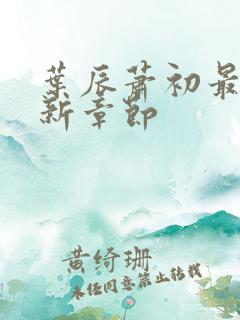 葉辰蕭初最
新章節
黄绮珊
未经同意禁止转载